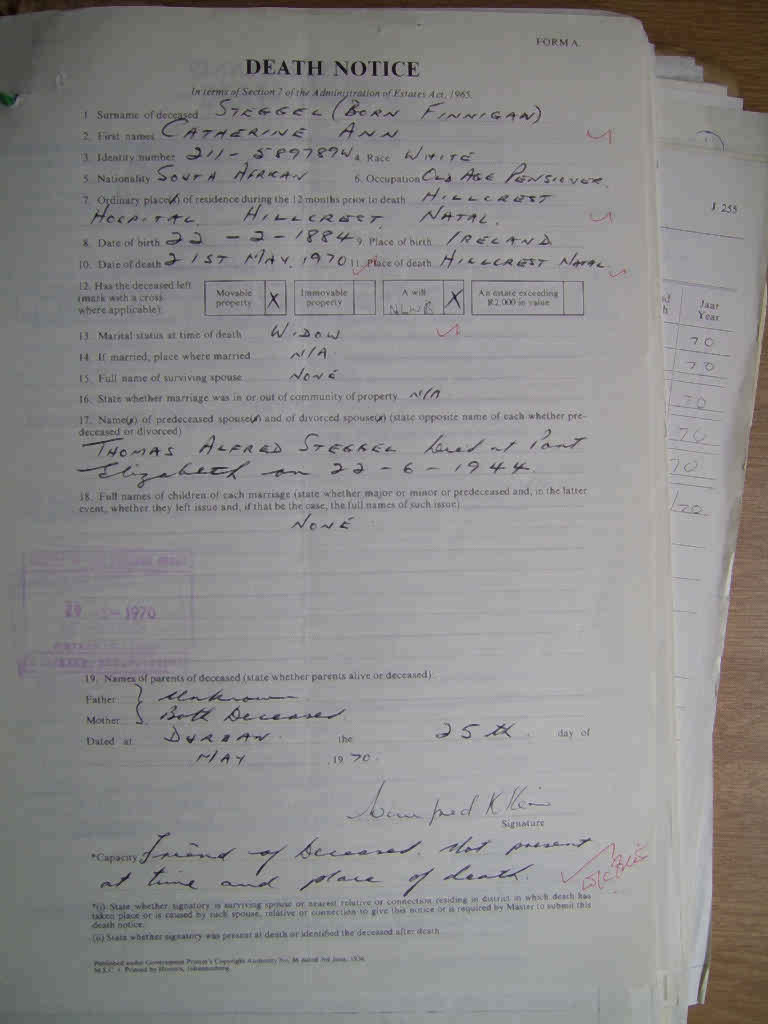 FORM A.
DEATH NOTICE
In terms of Section 7 of the Administration of Estates Act, 1965.
1. Surname of deceased STEGGEL (BORN FINNIGAN)
2. First names CATHERINE ANN
3. Identity number 211-589789W 4. Race WHITE
5. Nationality SOUTH AFRICAN 6. Occupation OLD AGE PENSIONER.
7. Ordinary place(s) of residence during the 12 months prior to death HILLCREST
HOSPITAL. HILLCREST. NATAL.
8. Date of birth 22-2-1884 9. Place of birth IRELAND
10. Date of death 21ST MAY. 1970 11. Place of death HILLCREST NATAL.
12. Has the deceased left (mark with a cross where applicable): Movable property X Immovable property A will NLWR X An estate exceeding R2 000 in value
13. Marital status at time of death WIDOW
14. If married, place where married N/A.
15. Full name of surviving spouse NONE
16. State whether marriage was in or out of community of property N/A
17. Name(s) of predeceased spouse(s) and of divorced spouse(s) (state opposite name of each whether pre-
deceased or divorced)
THOMAS ALFRED STEGGEL died at Port
Elizabeth on 22-6-1944.
18. Full names of children of each marriage (state whether major or minor or predeceased and, in the latter
event, whether they left issue and, if that be the case, the full names of such issue)
NONE
1970
19. Names of parents of deceased (state whether parents alive or deceased)
Father } Unknown
Mother } Both Deceased.
Dated at DURBAN. the 25th. day of
MAY , 1970.
Signature
*Capacity Friend of Deceased. Not present
at time and place of death.
*(i) State whether signatory is surviving spouse or nearest relative or connection residing in district in which death has
taken place or is caused by such spouse, relative or connection to give this notice or is required by Master to submit this
death notice.
(ii) State whether signatory was present at death or identified the deceased after death
Published under Government Printer's Copyright Authority No.
J 255
Jaar
Year
70
70
70
70
70
/70